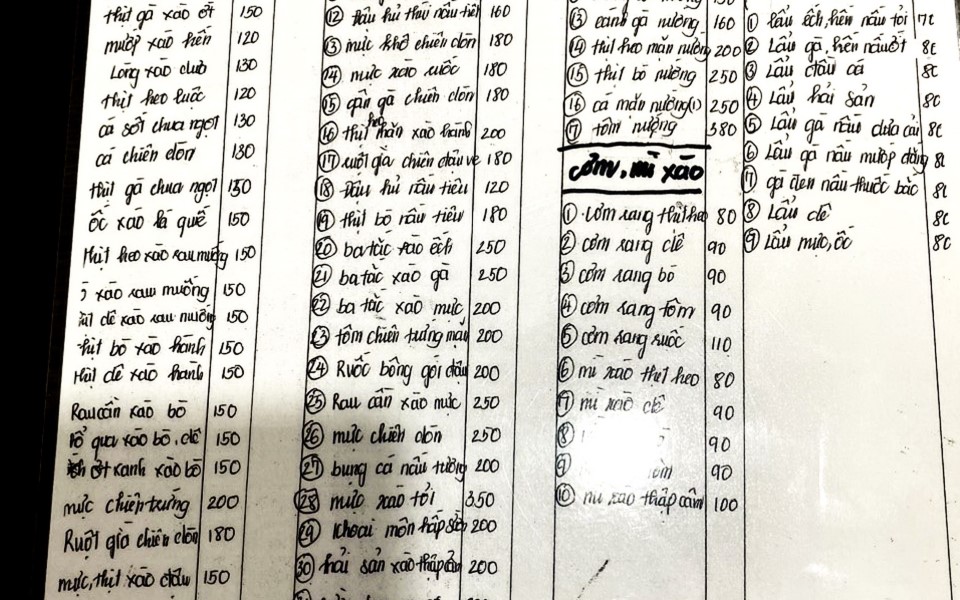 thịt gà xào ớt 150
mướp xào hến 120
Lòng xào dưa 130
thịt heo luộc 120
cá sốt chua ngọt 130
cá chiên dòn 130
thịt gà chua ngọt 150
ốc xào lá quế 150
thịt heo xào rau muống 150
xào rau muống 150
dê xào rau muống 150
thịt bò xào hành 150
thịt dê xào hành 150
Rau cần xào bò 150
qua xào bò, dê 150
ớt xanh xào bò 150
mực chiên trứng 200
Ruột già chiên dòn 180
mực, thịt xào dưa 150
⑫ Đậu hủ thúi nấu tiết 160
⑬ mực khô chiên dòn 180
⑭ mực xào ruốc 180
⑮ gân gà chiên dòn 180
⑯ thịt heo mặn xào hành 200
⑰ ruột già chiên đầu ve 180
⑱ Đậu hủ nấu tiêu 120
⑲ thịt bò nấu tiêu 180
⑳ ba tắc xào ếch 250
㉑ ba tắc xào gà 250
㉒ ba tắc xào mực 200
㉓ tôm chiên tương mặn 200
㉔ Ruốc bông gói đậu 200
㉕ Rau cần xào mực 250
㉖ mực chiên dòn 250
㉗ bụng cá nấu tương 200
㉘ mực xào tỏi 350
㉙ Khoai môn hấp 200
㉚ hải sản xào thập cẩm 200
⑬ cánh gà nướng 160
⑭ thịt heo mặn nướng 200
⑮ thịt bò nướng 250
⑯ cá mặn nướng(1) 250
⑰ tôm nướng 380
cơm, mì xào
① cơm rang thịt heo 80
② cơm rang dê 90
③ cơm rang bò 90
④ cơm rang tôm 90
⑤ cơm rang ruốc 110
⑥ mì xào thịt heo 80
⑦ mì xào dê 90
⑧ 90
⑨ 90
⑩ mì xào thập cẩm 100
① Lẩu ếch, hến nấu tỏi
② Lẩu gà, hến nấu ớt
③ Lẩu đầu cá
④ Lẩu hải sản
⑤ Lẩu gà nấu dưa cải
⑥ Lẩu gà nấu mướp đắng
⑦ gà đen nấu thuốc bắc
⑧ Lẩu dê
⑨ Lẩu mực, ốc